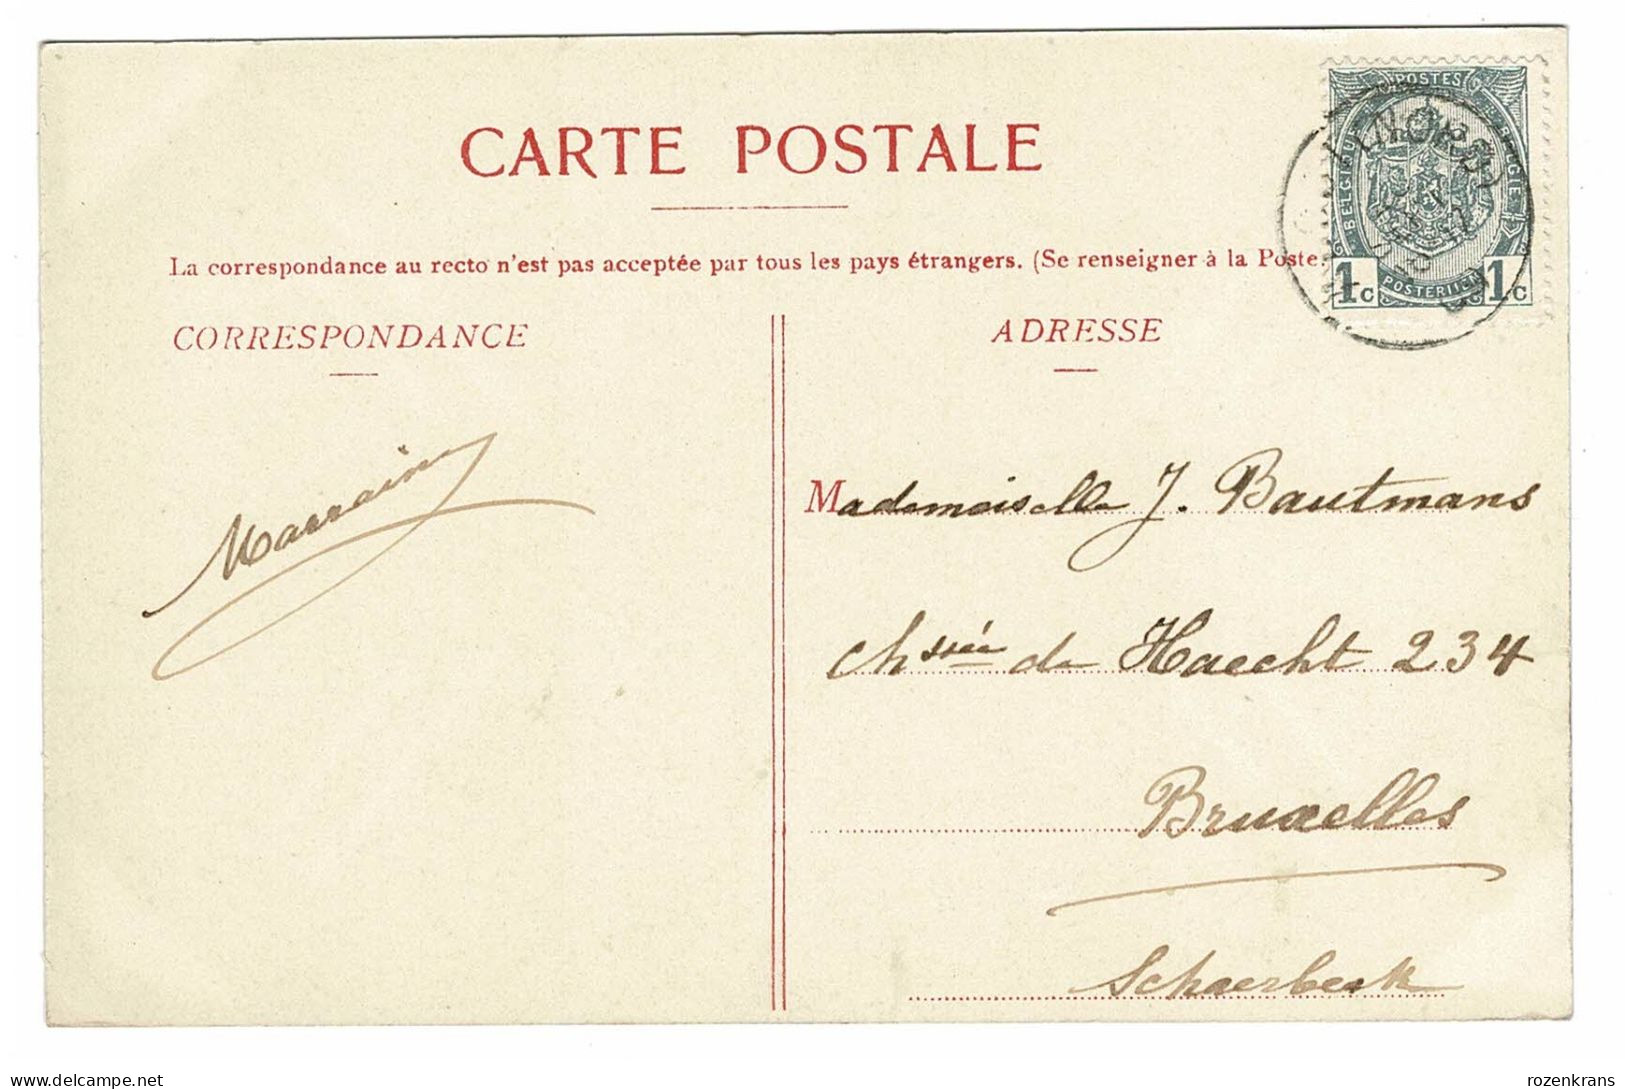 CARTE POSTALE
La correspondance au recto n'est pas acceptée par tous les pays étrangers. (Se renseigner à la Poste.
CORRESPONDANCE
ADRESSE
POSTES
BELGIQUE
BELGIË
POSTERIJEN
1c 1c
Marraine
Mademoiselle J. Bautmans
Chssée de Haecht 234
Bruxelles
Schaerbeek
rozenkrans